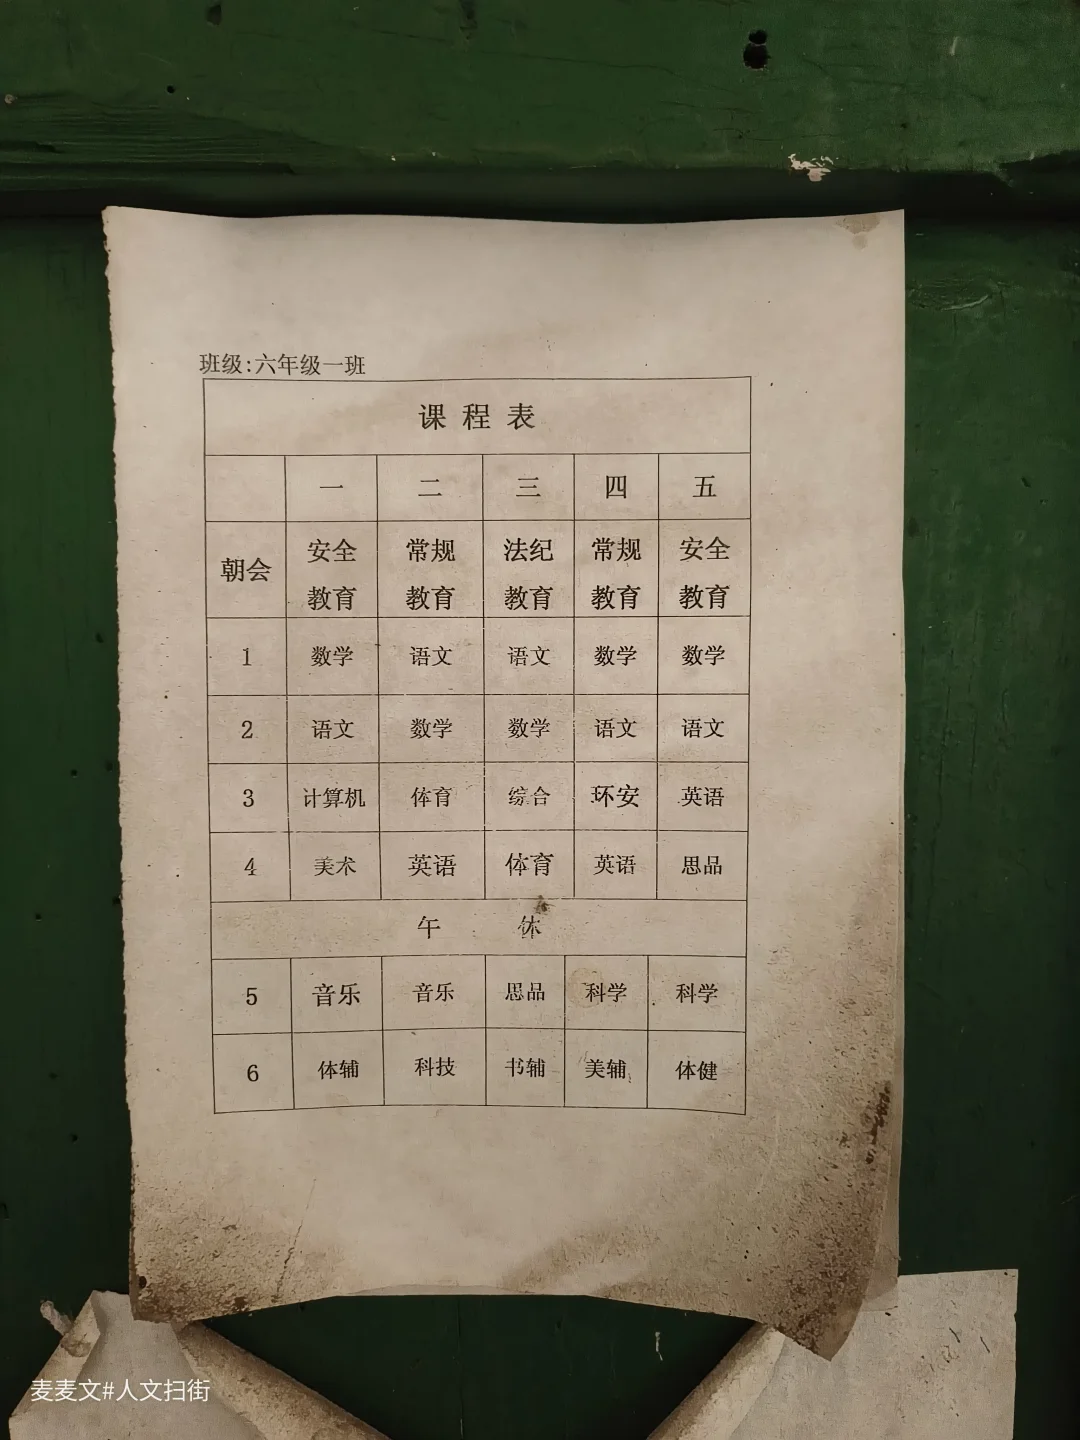 班级:六年级一班
课 程 表
一 二 三 四 五
朝会 安全教育 常规教育 法纪教育 常规教育 安全教育
1 数学 语文 语文 数学 数学
2 语文 数学 数学 语文 语文
3 计算机 体育 综合 环安 英语
4 美术 英语 体育 英语 思品
午 休
5 音乐 音乐 思品 科学 科学
6 体辅 科技 书辅 美辅 体健
麦麦文#人文扫街